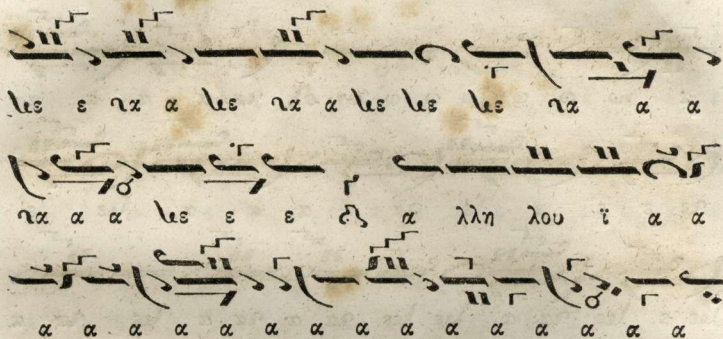 νε ε να α νε να α νε νε νε να α α
να α α νε ε ε α λλη λου ϊ α α
α α α α α α α α α α α α α α α